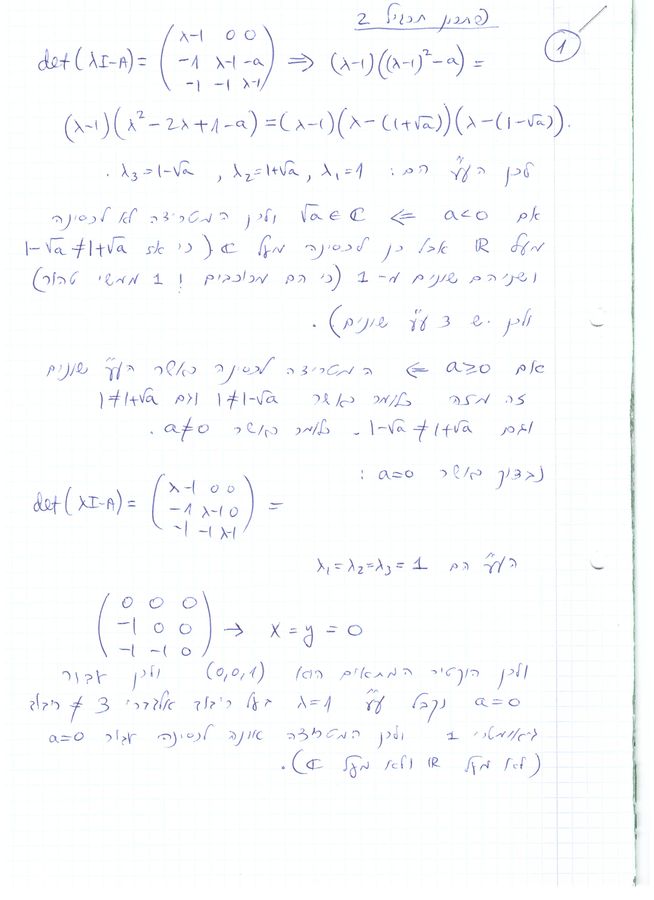 פתרון תרגיל 2
1
det(λI-A) = (λ-1 0 0
-1 λ-1 -a
-1 -1 λ-1) ⇒ (λ-1)((λ-1)²-a) =
(λ-1)(λ²-2λ+1-a) = (λ-1)(λ-(1+√a))(λ-(1-√a)).
לכן הע"ע הם: λ₁=1, λ₂=1+√a, λ₃=1-√a.
אם a<0 ⇐ √a∈ℂ ולכן המטריצה לא לכסינה
מעל ℝ אבל כן לכסינה מעל ℂ (כי אז 1+√a≠1-√a
ושניהם שונים מ-1 (כי הם מרוכבים ו 1 ממשי טהור)
ולכן יש 3 ע"ע שונים).
אם a≥0 ⇐ המטריצה לכסינה כאשר הע"ע שונים
זה מזה כלומר כאשר 1≠1-√a וגם 1≠1+√a
וגם 1-√a≠1+√a. כלומר כאשר a≠0.
נבדוק כאשר a=0:
det(λI-A) = (λ-1 0 0
-1 λ-1 0
-1 -1 λ-1) =
הע"ע הם λ₁=λ₂=λ₃=1
(0 0 0
-1 0 0
-1 -1 0) → x=y=0
ולכן הוקטור המתאים הוא (0,0,1) ולכן עבור
a=0 נקבל ע"ע λ=1 בעל ריבוב אלגברי 3 ≠ ריבוב
גיאומטרי 1 ולכן המטריצה אינה לכסינה עבור a=0
(לא מעל ℝ ולא מעל ℂ).